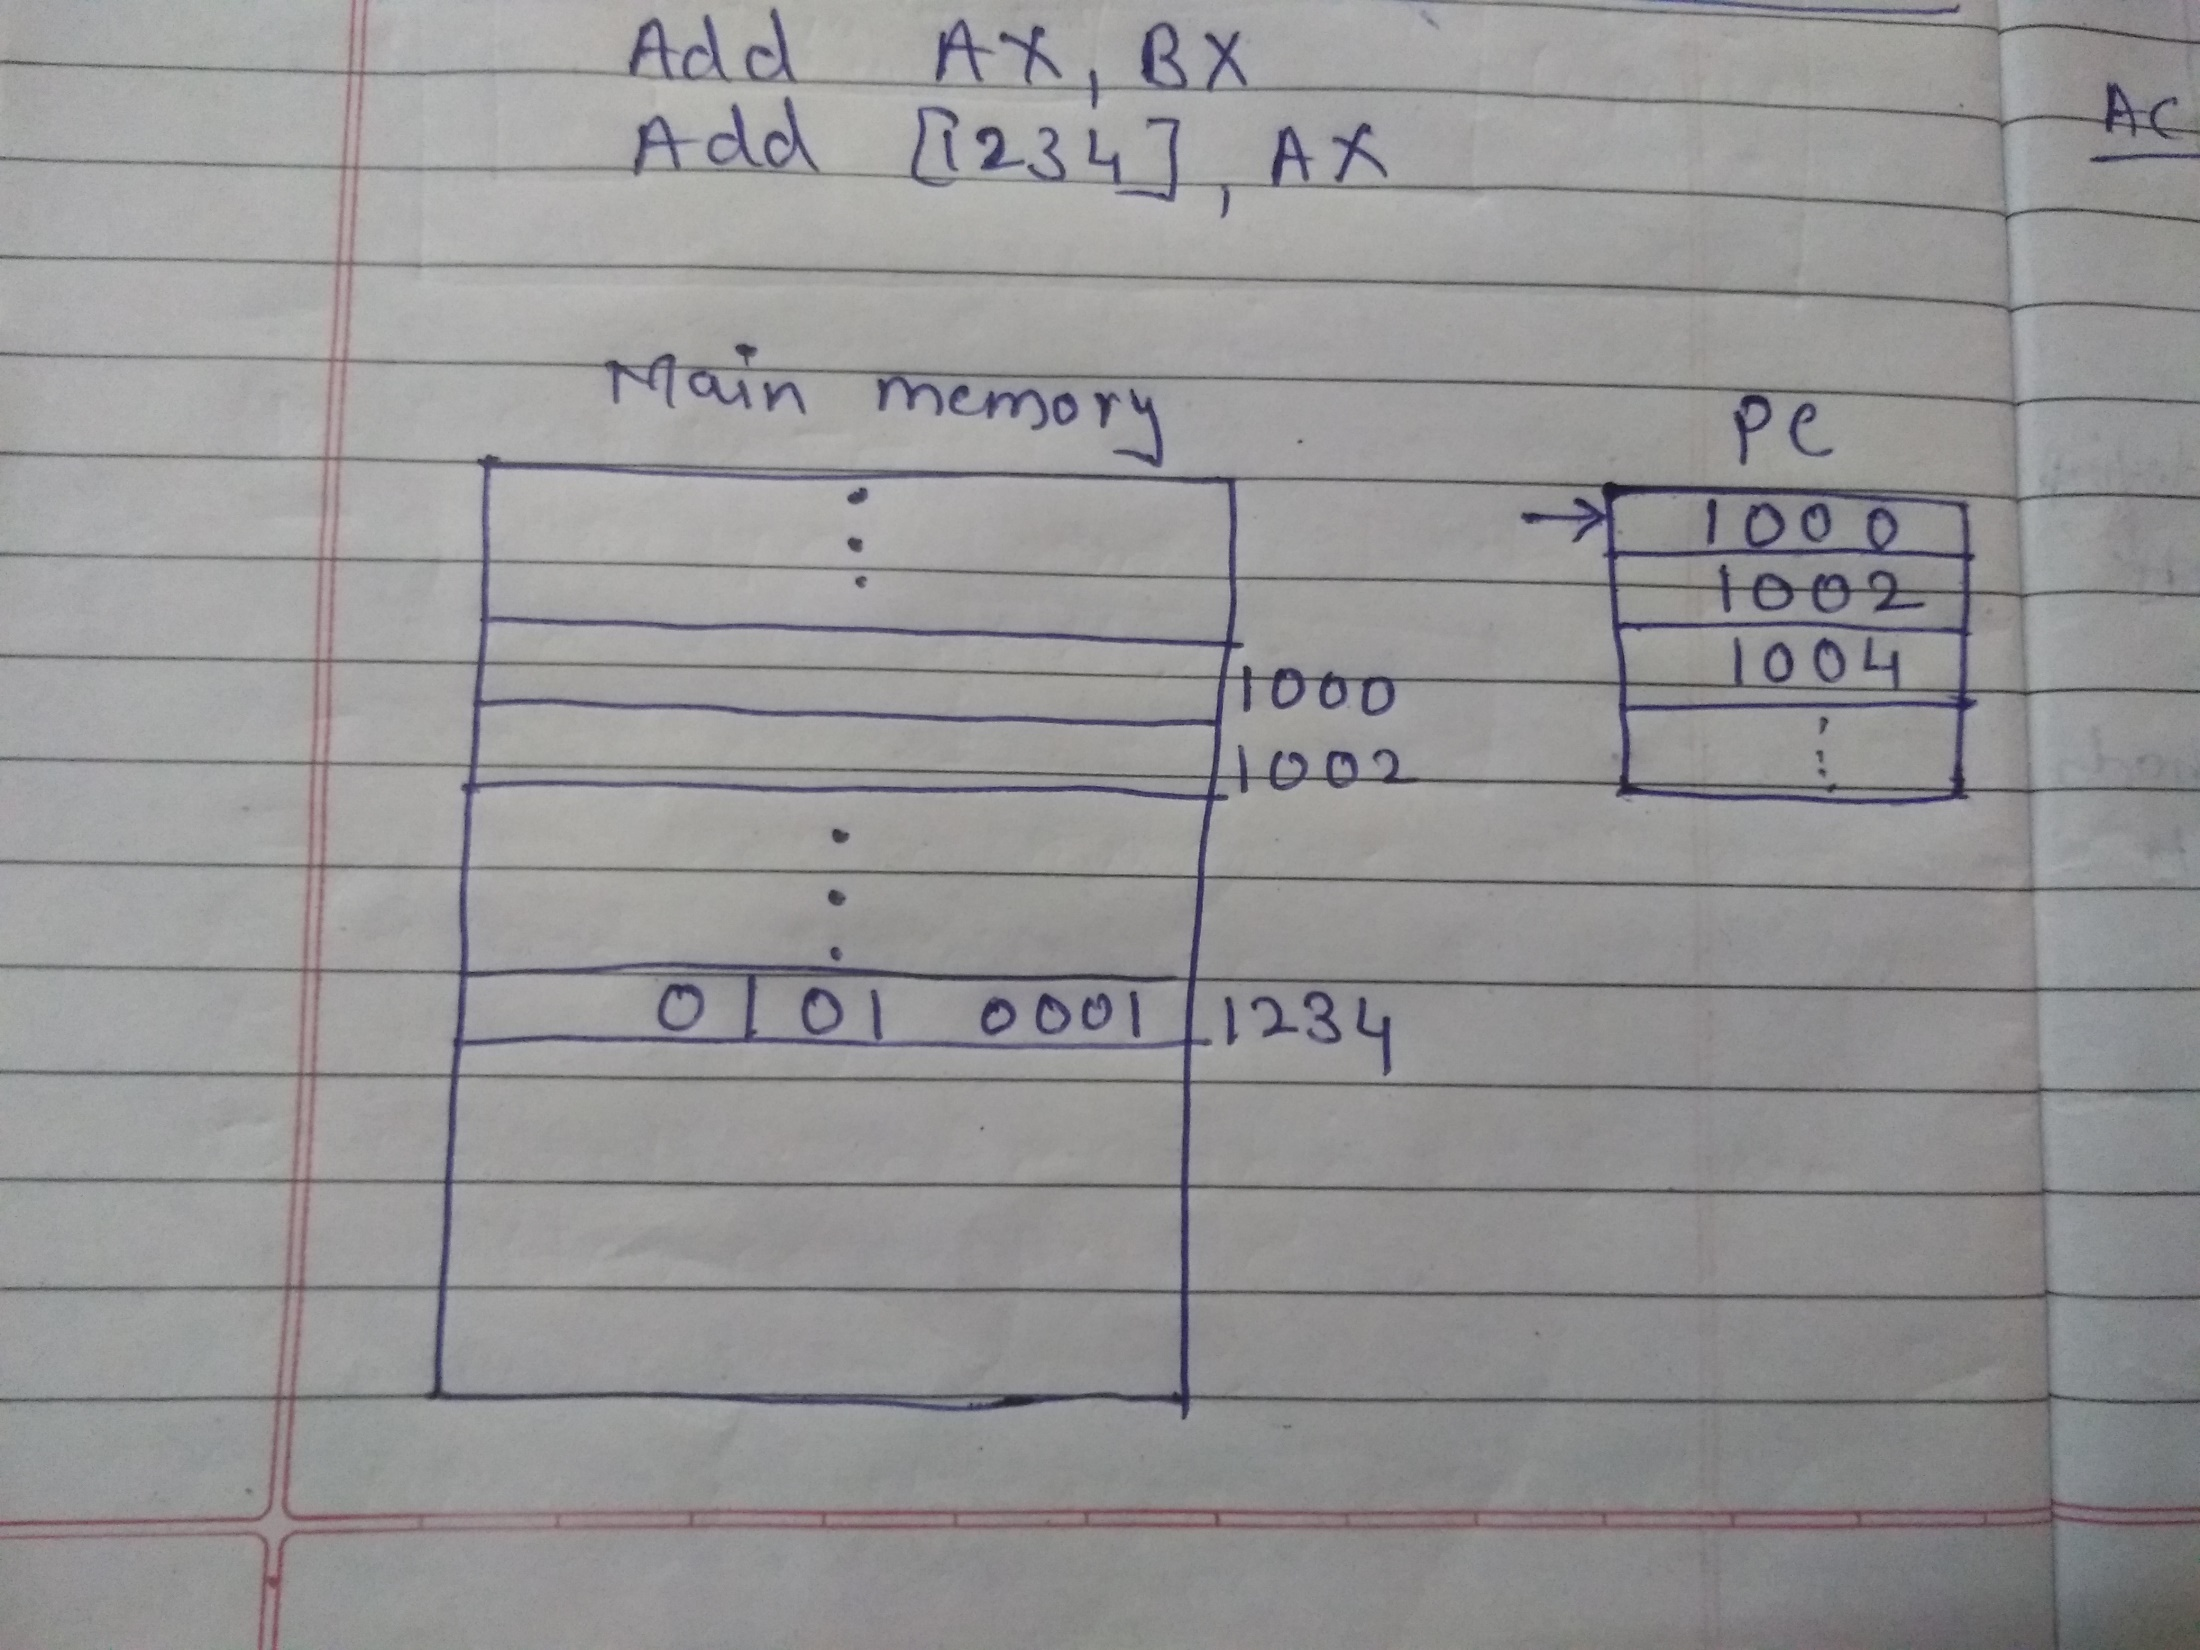 Add AX, BX
Add [1234], AX
AC
Main memory
PC
1000
1002
1004
1000
1002
0 | 01 0001 1234